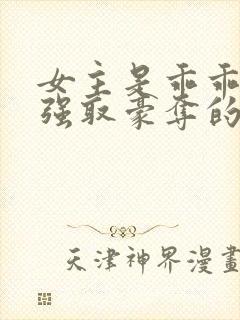 女主是乖乖
强取豪夺的
天津神界漫畫